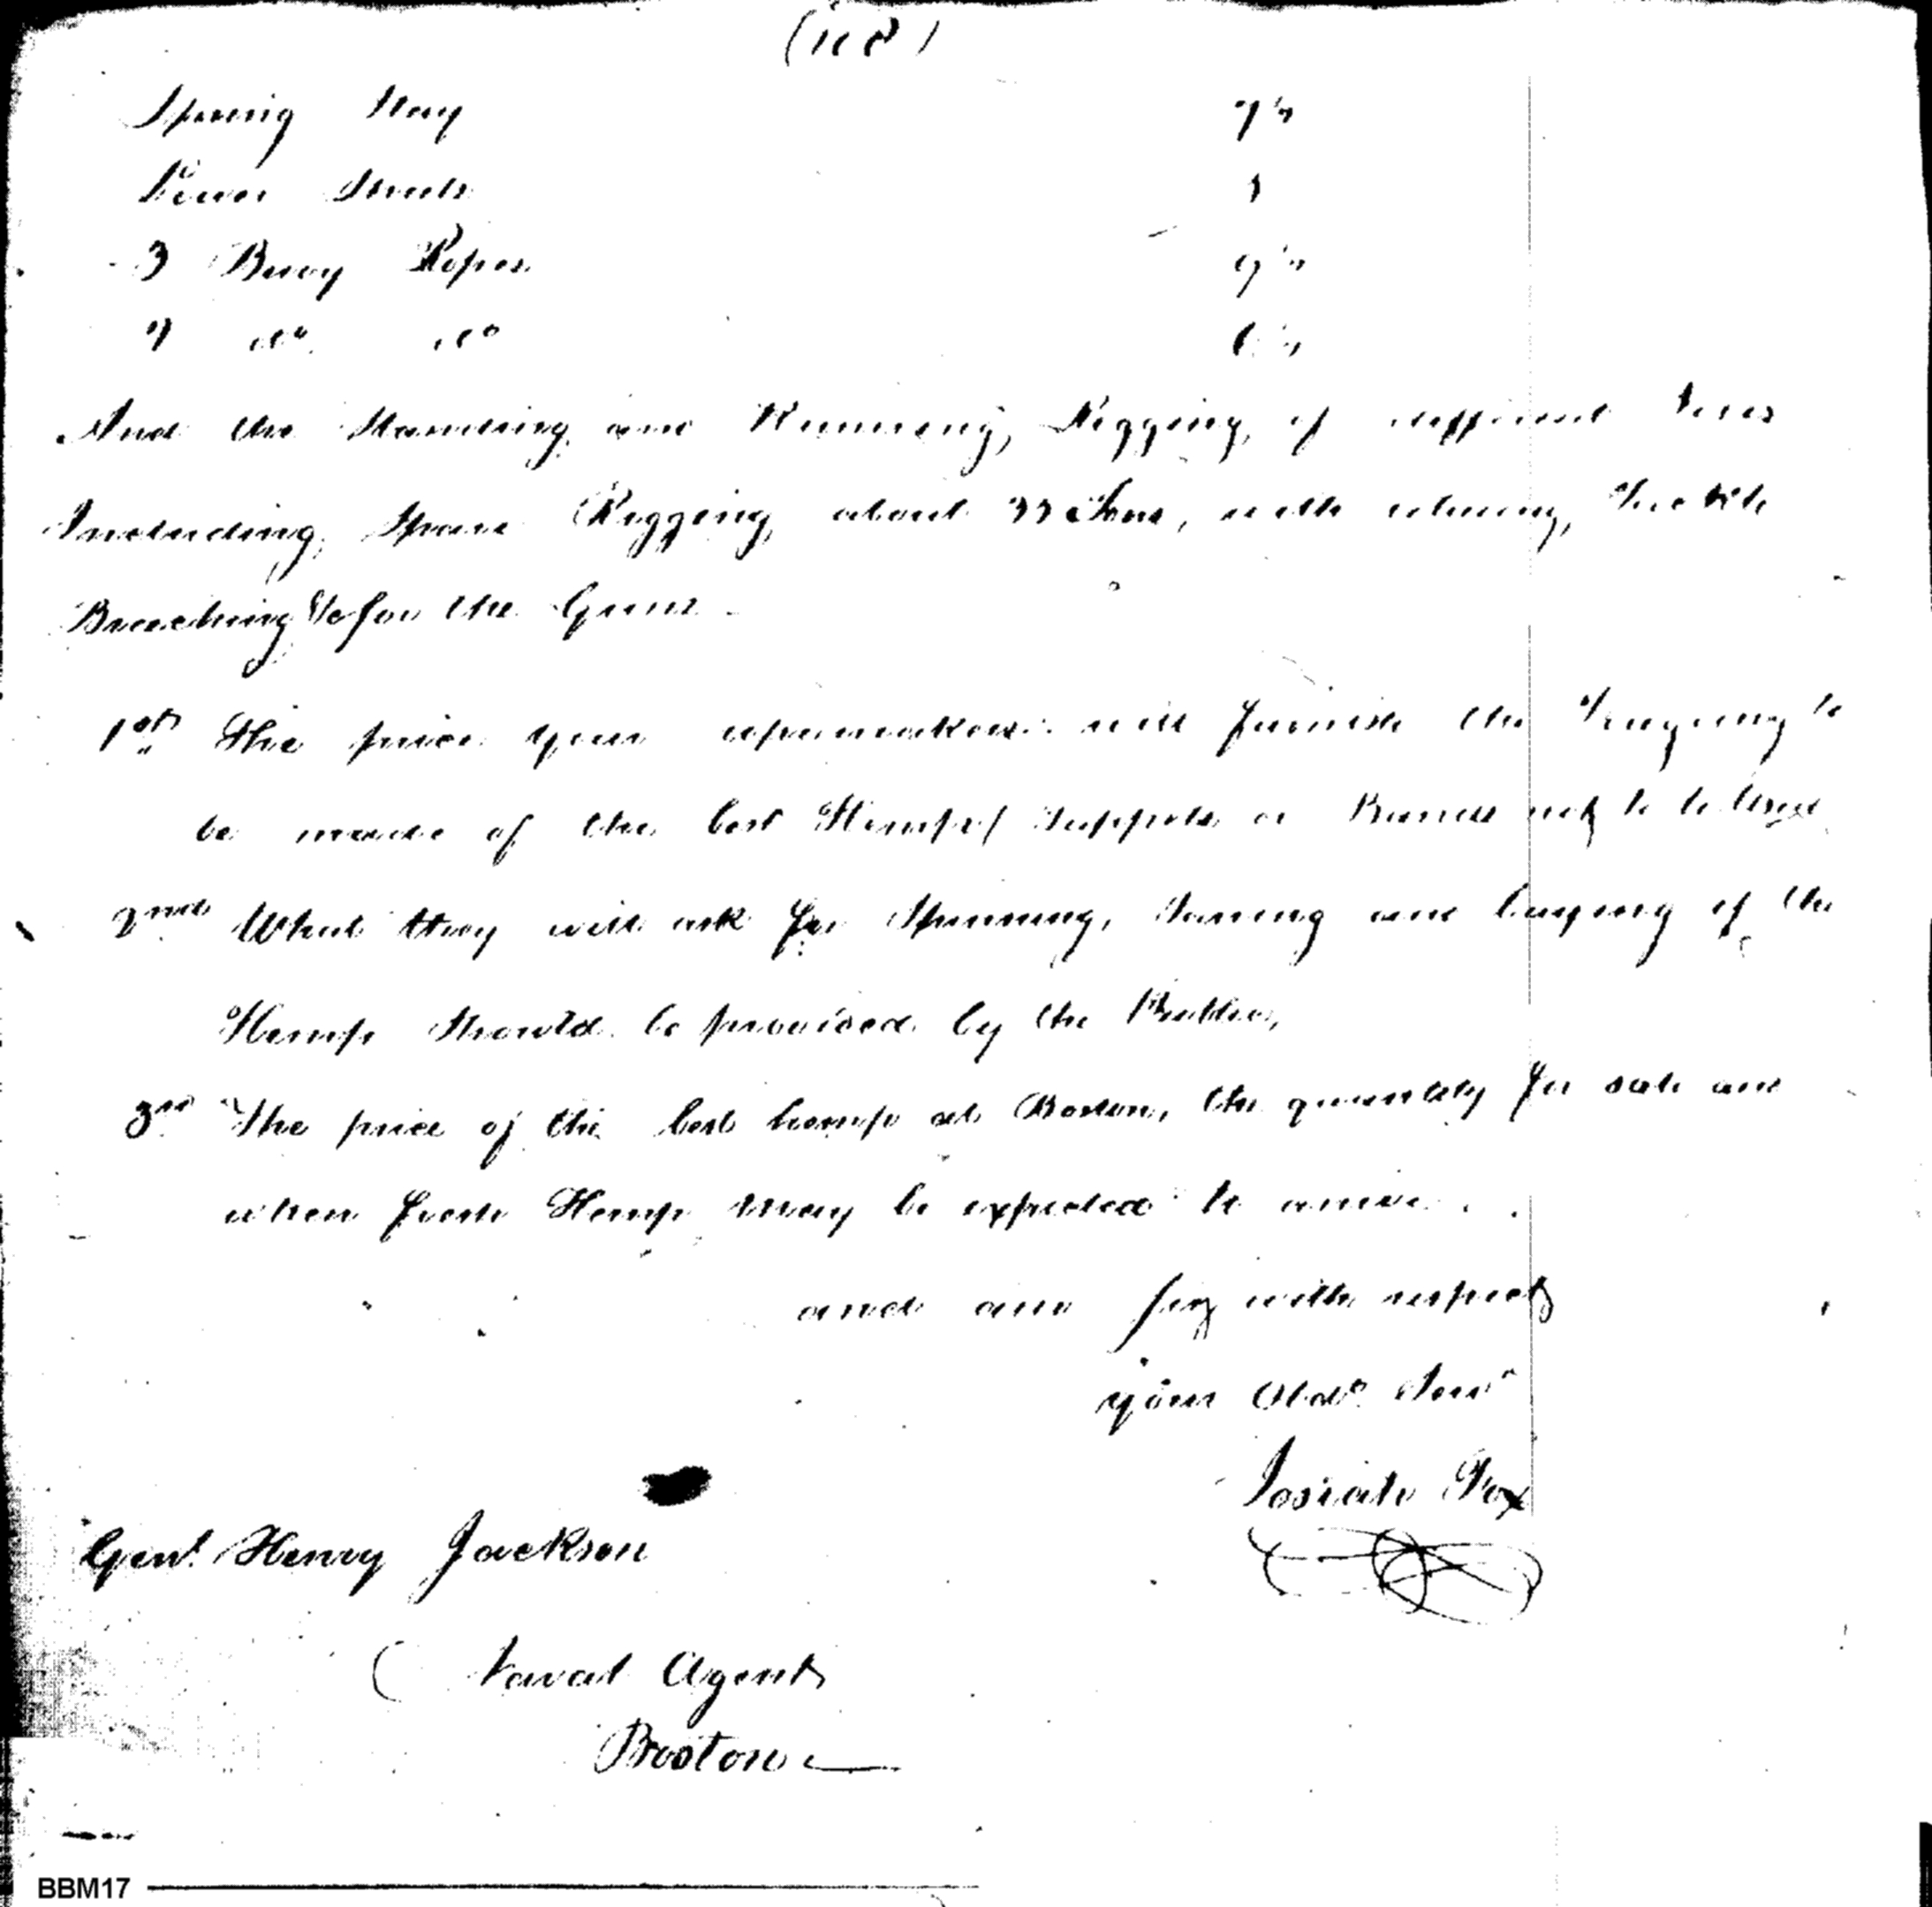 Spring Stay 7 in
Lower Sheets
3 Buoy Ropes 9 in
do do 6 in
And the Standing and Running Rigging, of different sizes
Including, Spare Rigging, about Tons, with Tackle
Breeching &c for the Guns
1st The price your ropemakers will furnish the Rigging to
be made of the best Hemp or not to be Used
2nd What they will ask for Spinning, Tarring and laying of the
Hemp Should be provided by the Public,
3rd The price of the best hemp at Boston, the quantity for sale and
when fresh Hemp may be expected to arrive.
and am Sir with respect
your Obdt Servt
Josiah Fox
Genl. Henry Jackson
Naval Agent
Boston
BBM17